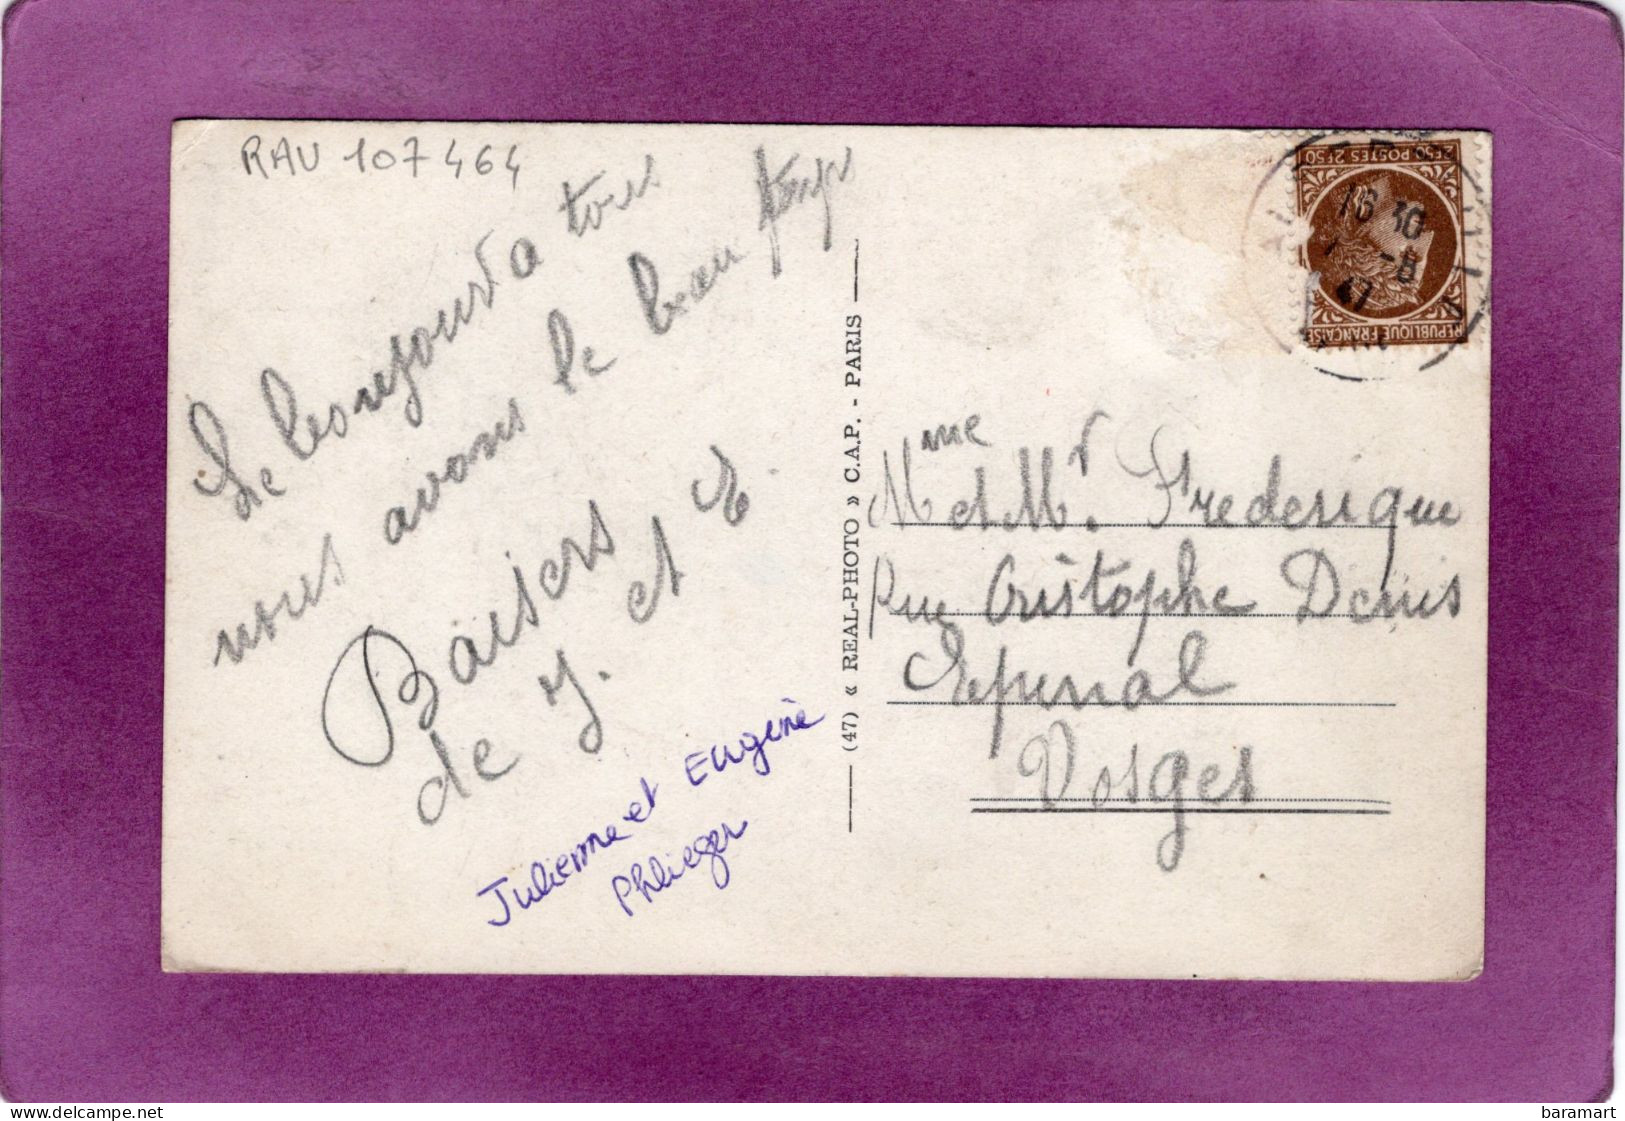 RAU 107464
Le bonjour a tous
nous avons le beau temps
Baisers
de J. et E.
Julienne et Eugène
Phlieger
(47) « REAL-PHOTO » C.A.P. - PARIS
2F50 POSTES 2F50
REPUBLIQUE FRANÇAISE
16 30
-8
47
Mme et Mr. Frederique
Rue Cristophe Denis
Epinal
Vosges
baramart
www.delcampe.net